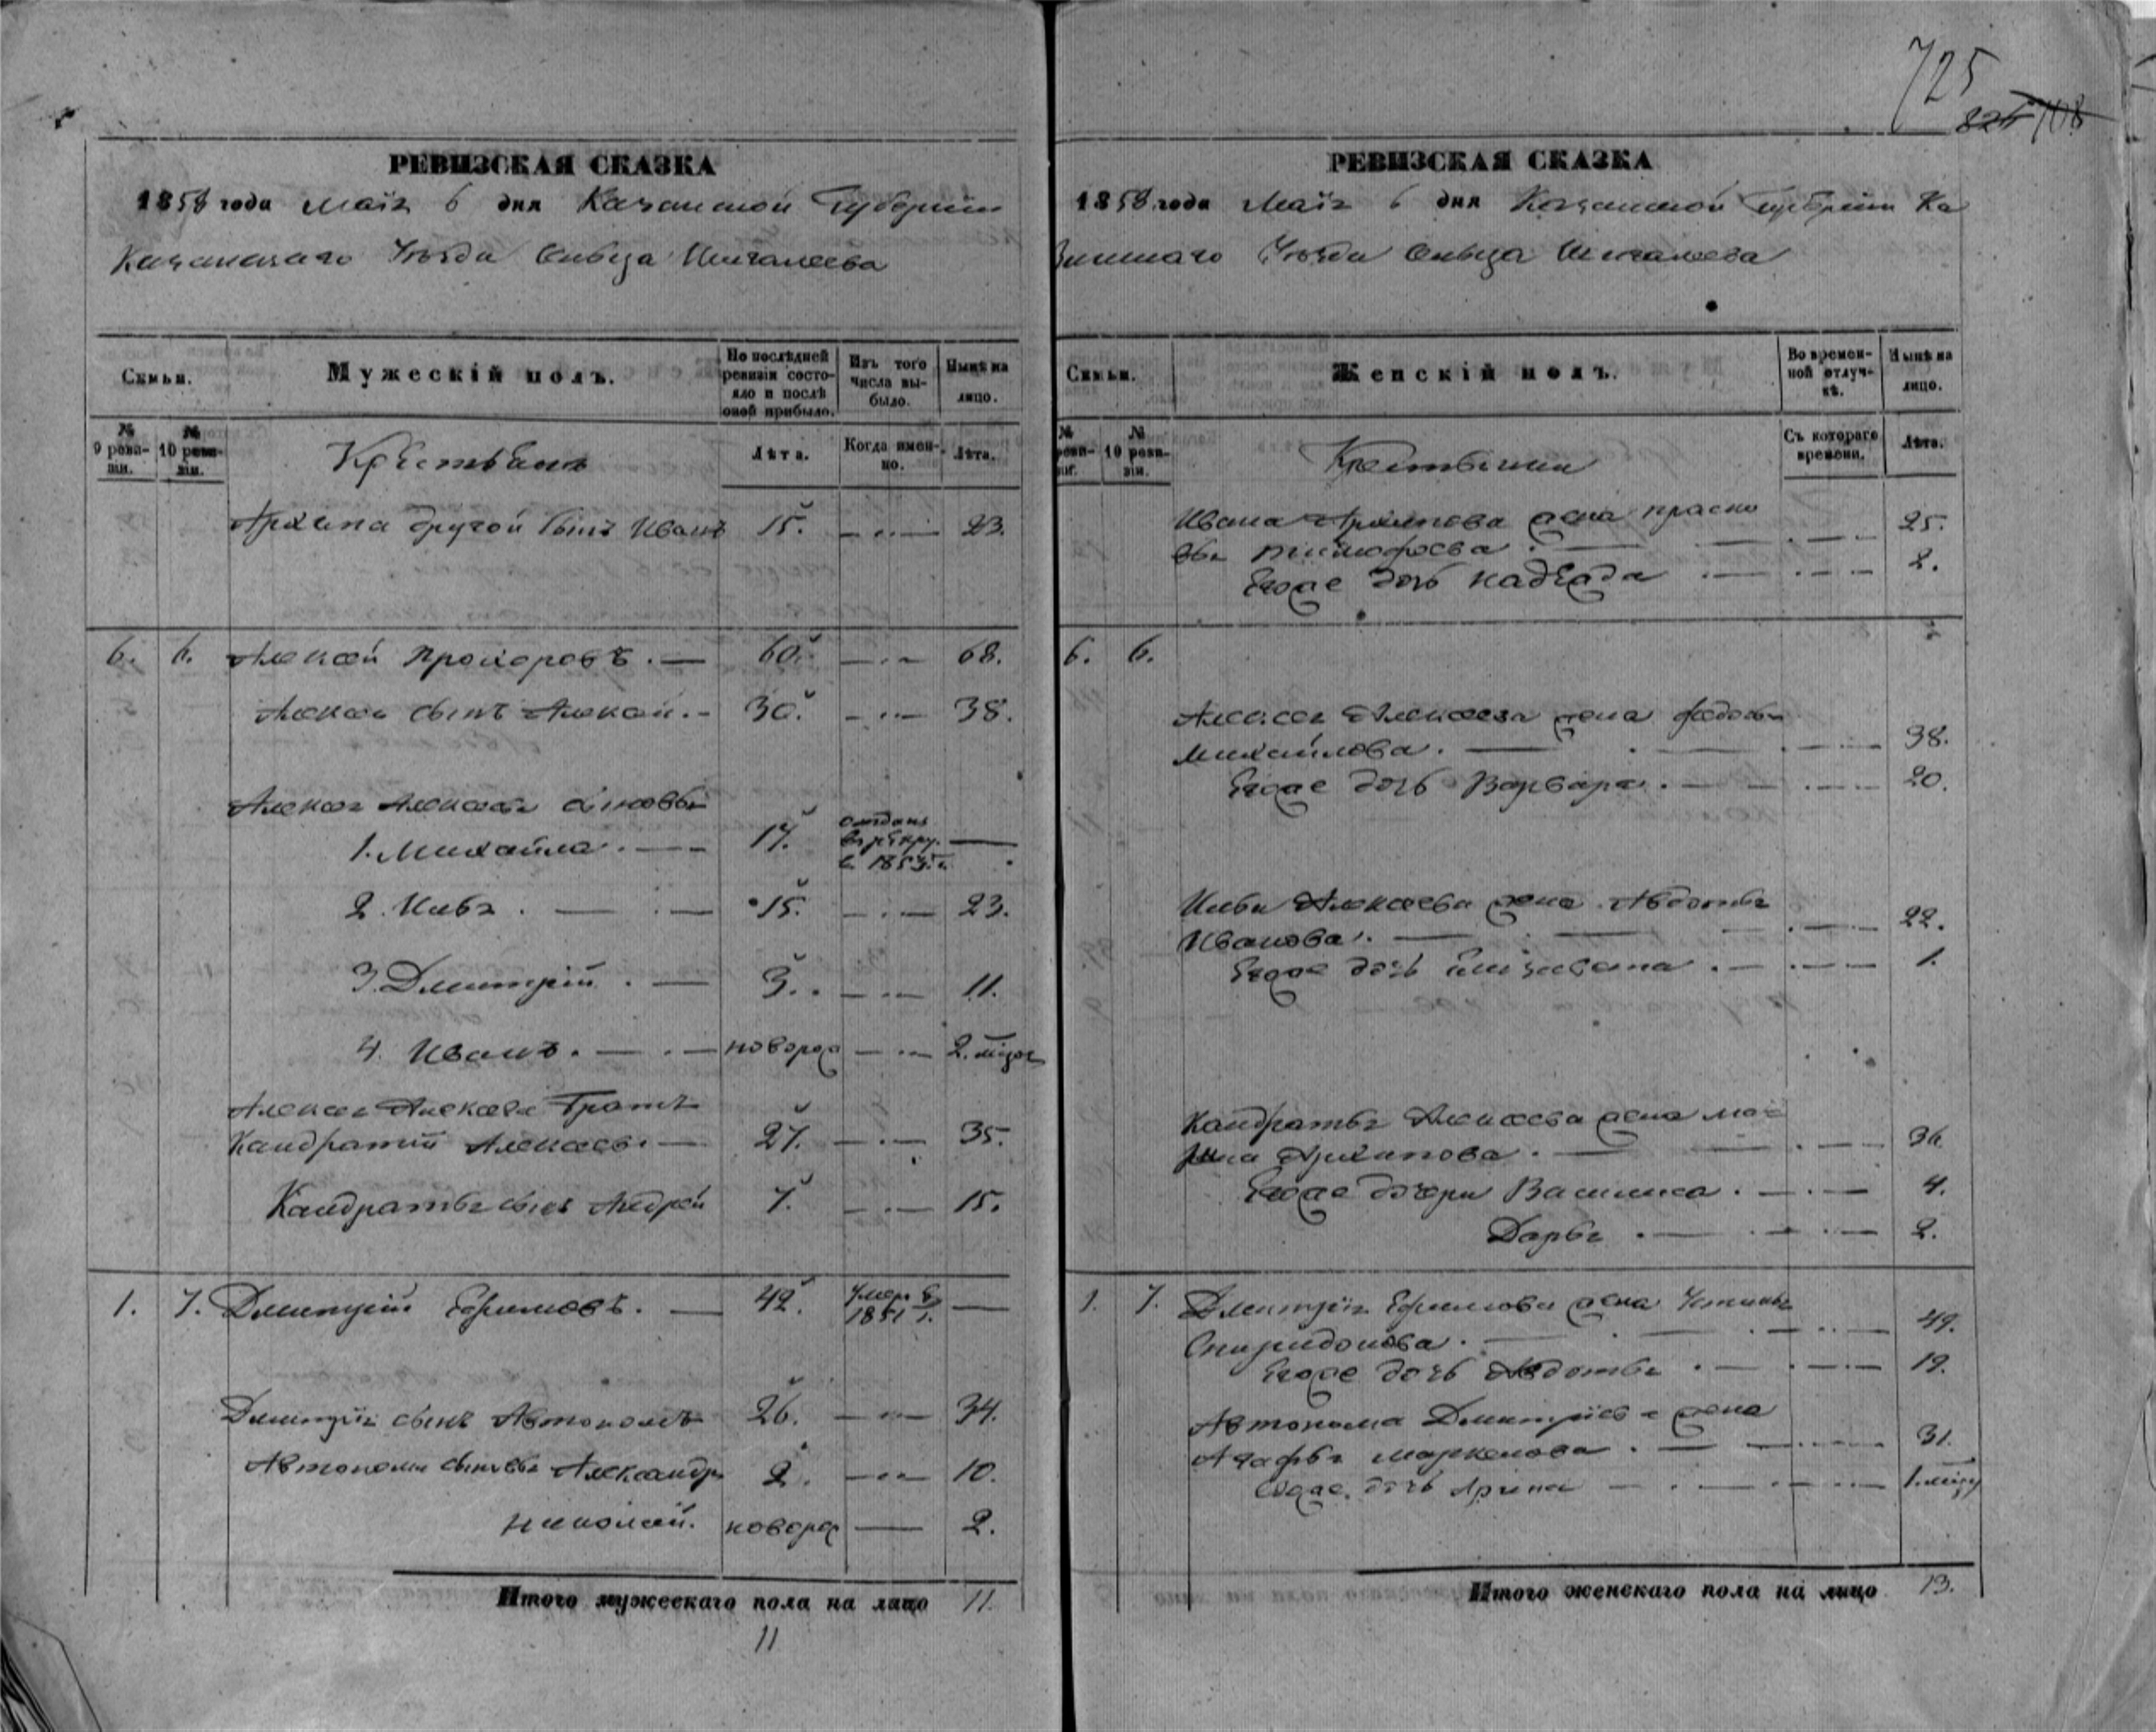 725
108
РЕВИЗСКАЯ СКАЗКА
1858 года Маія 6 дня Казанской Губерніи
Казанскаго Уѣзда Сельца Шигалеева
Семьи.
Мужескій полъ.
По послѣдней ревизіи состояло и послѣ оной прибыло.
Изъ того числа выбыло.
Нынѣ на лицо.
№ 9 ревизіи.
№ 10 ревизіи.
Крестьянъ
Лѣта.
Когда именно.
Лѣта.
Архипа другой сынъ Иванъ 15. 23.
6. 6. Алексей Прохоровъ. 60. 68.
Алексея сынъ Алексей. 30. 38.
Алексея Алексеева сыновья
1. Михайла. 17. отданъ в рекру. в 1853 г.
2. Илья. 15. 23.
3. Дмитрій. 3. 11.
4. Иванъ. новорож 2. месяц
Алексея Алексеева братъ
Кандратій Алексеевъ 27. 35.
Кандратья сынъ Андрей 7. 15.
1. 7. Дмитрій Ефимовъ. 42. умеръ в 1851 г.
Дмитрія сынъ Автономъ 26. 34.
Автонома сыновья Александръ 2. 10.
Николай. новорож 2.
Итого мужескаго пола на лицо 11.
11
РЕВИЗСКАЯ СКАЗКА
1858 года Маія 6 дня Казанской Губерніи Ка
занскаго Уѣзда Сельца Шигалеева
Семьи.
Женскій полъ.
Во временной отлучкѣ.
Нынѣ на лицо.
№ реви-
№ 10 ревизіи.
Крестьянки
Съ котораго времени.
Лѣта.
Ивана Архипова жена Праско
вья Тимофеева. 25.
Ево же дочь Надежда 2.
6. 6.
Алексея Алексеева жена Федосья
Михайлова. 38.
Ево же дочь Варвара. 20.
Ильи Алексеева жена Авдотья
Иванова. 22.
Ево же дочь Елизавета. 1.
Кандратья Алексеева жена Ма
рина Архипова. 36.
Ево же дочери Василиса. 4.
Дарья. 2.
1. 7. Дмитрія Ефимова жена Устинья
Спиридонова. 49.
Ево же дочь Авдотья. 19.
Автонома Дмитріева жена
Агафья Маркелова. 31.
Ево же дочь Арина 1. месяц
Итого женскаго пола на лицо 13.